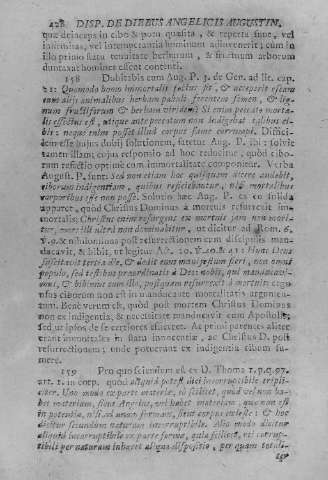 428 DISP. DE DIEBUS ANGELICIS AUGUSTIN.
quæ deinceps in cibo & potu quæsita, & reperta sunt, vel
infirmitas, vel intemperantia hominum adinvenerit; cum in
illo primo statu tenuitate herbarum, & fructuum arborum
duntaxat homines essent contenti.
158 Dubitabis cum Aug. P. 3. de Gen. ad lit. cap.
21: Quomodo homo immortalis factus sit, & acceperit escam
cum aliis animalibus herbam pabuli ferentem semen, & lig-
num fructiferum & herbam viridem? Si enim peccato morta-
lis effectus est, utique ante peccatum non indigebat talibus ci-
bis: neque enim posset illud corpus fame corrumpi. Difficul-
em esse hujus dubij solutionem, fatetur Aug. P. ibi: solvit
tamen illam; cujus responsio ad hoc reducitur, quod cibo-
rum refectio optime cum immortalitate componitur. Verba
August. P. sunt: Sed non etiam hoc quisquam dicere audebit,
ciborum indigentiam, quibus reficiebantur, nisi mortalibus
corporibus esse non posse. Solutio hæc Aug. P. ex eo solida
apparet, quod Christus Dominus à mortuis resurrexit im-
mortalis; Christus enim resurgens ex mortuis jam non mori-
tur, mors illi ultra non dominabitur, ut dicitur ad Rom. 6.
v. 9. & nihilominus post resurrectionem cum discipulis man-
ducavit, & bibit, ut legitur Act. 10. v. 40. & 41: Hunc Deus
suscitavit tertia die, & dedit eum manifestum fieri, non omni
populo, sed testibus præordinatis à Deo: nobis, qui manducavi-
mus, & bibimus cum illo, postquam resurrexit à mortuis
usus ciborum non est in manducante mortalitatis argumen-
tum. Bene verum est, quod post mortem Christus Dominus
non ex indigentia, & necessitate manducavit cum Apostolis;
sed ut ipsos de se certiores efficeret. At primi parentes aliter
erant immortales in statu innocentiæ, ac Christus D. post
resurrectionem; unde poterant ex indigentia cibum su-
mere.
159 Pro quo sciendum est ex D. Thoma 1. p. q. 97.
art. 1. in corp. quod aliquid potest dici incorruptibile tripli-
citer. Uno modo ex parte materiæ, eò scilicet, quod vel non ha-
bet materiam, sicut Angelus, vel habet materiam, quæ non est
in potentia, nisi ad unam formam, sicut corpus cæleste: & hoc
dicitur secundum naturam incorruptibile. Alio modo dicitur
aliquid incorruptibile ex parte formæ, quia scilicet, rei corrup-
tibili per naturam inhæret aliqua dispositio, per quam totali-